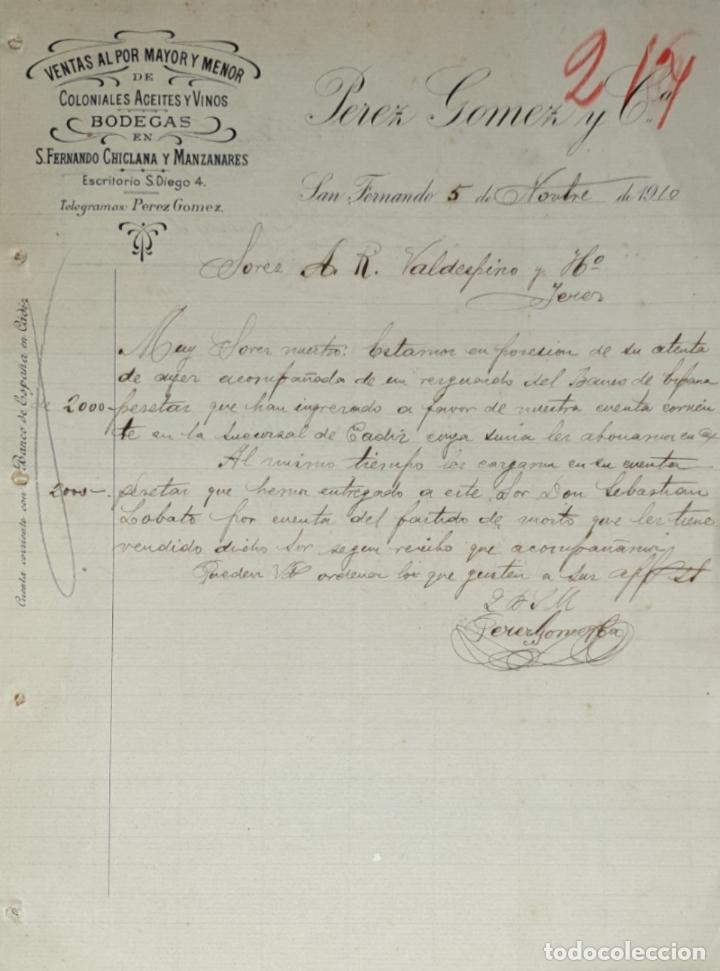 VENTAS AL POR MAYOR Y MENOR
DE
COLONIALES ACEITES Y VINOS
BODEGAS
EN
S. FERNANDO CHICLANA Y MANZANARES
Escritorio S. Diego 4.
Telegramas: Perez Gomez.
Perez Gomez y Cª
San Fernando 5 de Novbre de 1910
Sores A. R. Valdespino y Hº
Jerez
Muy Sores nuestros: Estamos en posesion de su atenta
de ayer acompañada de un resguardo del Banco de España
de 2000- pesetas que han ingresado a favor de nuestra cuenta corrien
te en la sucursal de Cadiz cuya suma les abonamos en
Al mismo tiempo les cargamos en su cuenta
2000- pesetas que hemos entregado a este Sor Don Sebastian
Lobato por cuenta del partido de mosto que les tiene
vendido dicho Sor segun recibo que acompañamos
Pueden VV ordenar lo que gusten a sus
2 B S M
Perez Gomez Ca
Cuenta corriente con el Banco de España en Cádiz
todocoleccion